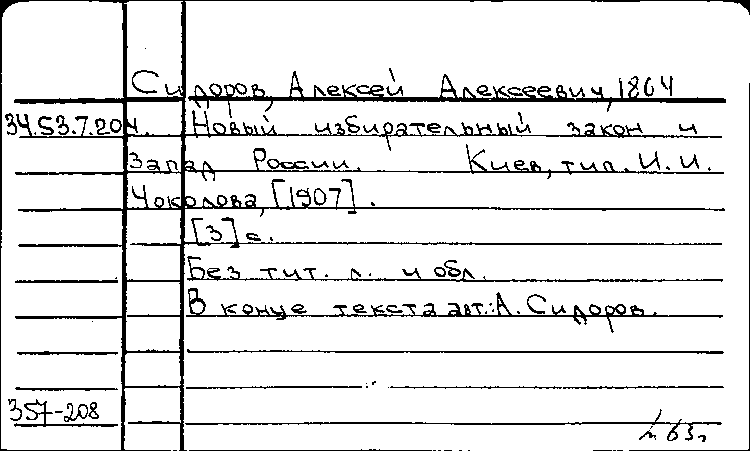 Сидоров, Алексей Алексеевич, 1864
34.53.7.204. Новый избирательный закон и
Запад России. Киев, тип. И. И.
Чоколова, [1907].
[3] с.
Без тит. л. и обл.
В конце текста авт.: А. Сидоров.
357-208